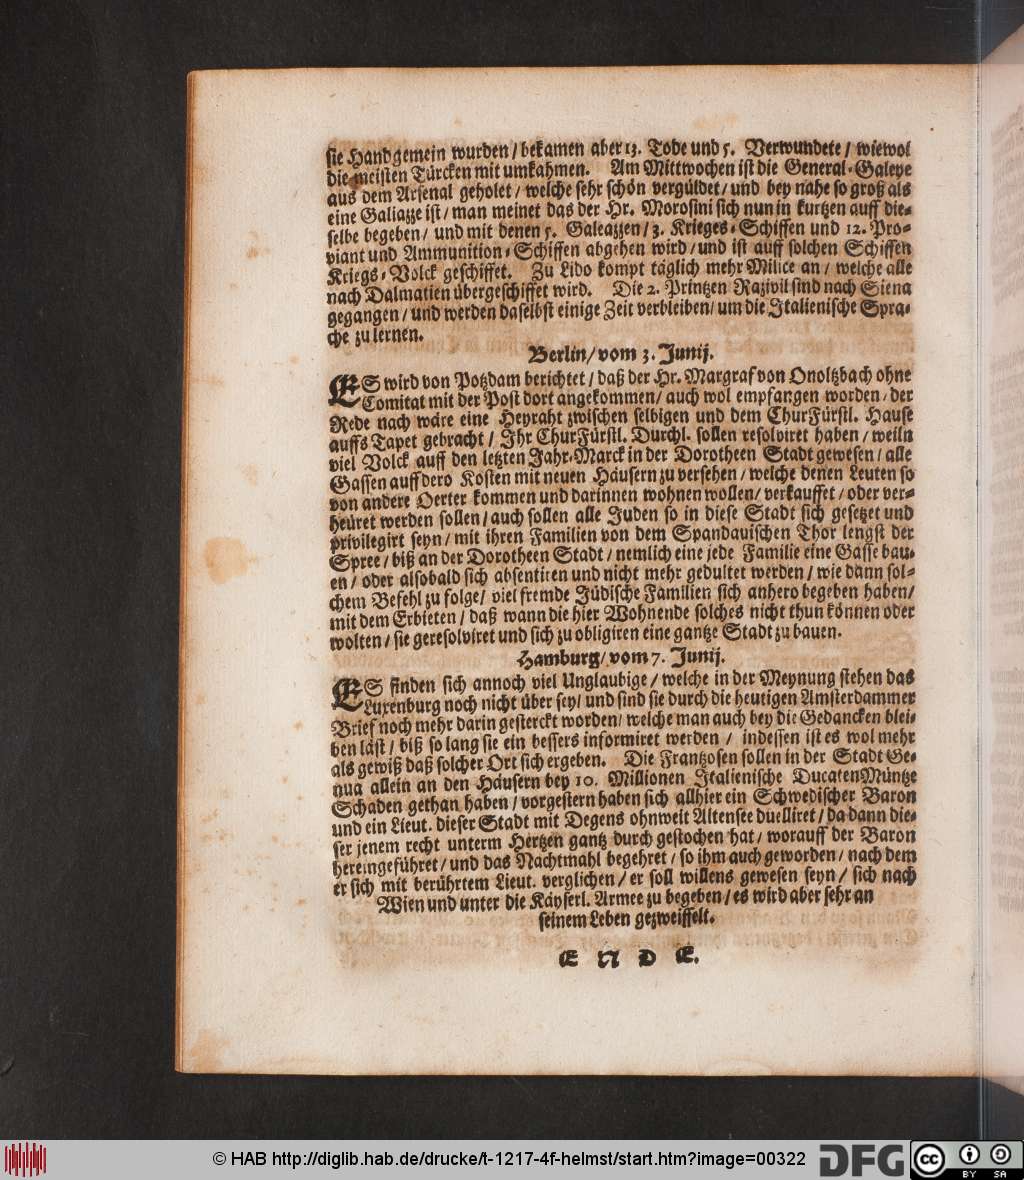 sie Handgemein wurden / bekamen aber 13. Tode und 5. Verwundete / wiewol
die meisten Türcken mit umkahmen. Am Mittwochen ist die General-Galeye
aus dem Arsenal geholet / welche sehr schön vergüldet / und bey nahe so groß als
eine Galiazze ist / man meinet das der Hr. Morosini sich nun in kurtzen auff die-
selbe begeben / und mit denen 5. Galeazzen / 3. Krieges-Schiffen und 12. Pro-
viant und Ammunition-Schiffen abgehen wird / und ist auff solchen Schiffen
Kriegs-Volck geschiffet. Zu Lido kompt täglich mehr Milice an / welche alle
nach Dalmatien übergeschiffet wird. Die 2. Printzen Razivil sind nach Siena
gegangen / und werden daselbst einige Zeit verbleiben / um die Italienische Spra-
che zu lernen.
Berlin / vom 3. Junij.
ES wird von Potzdam berichtet / daß der Hr. Margraf von Onoltzbach ohne
Comitat mit der Post dort angekommen / auch wol empfangen worden / der
Rede nach wäre eine Heyraht zwischen selbigen und dem ChurFürstl. Hause
auffs Tapet gebracht / Ihr ChurFürstl. Durchl. sollen resolviret haben / weiln
viel Volck auff den letzten Jahr-Marck in der Dorotheen Stadt gewesen / alle
Gassen auff dero Kosten mit neuen Häusern zu versehen / welche denen Leuten so
von andere Oerter kommen und darinnen wohnen wollen / verkauffet / oder ver-
heüret werden sollen / auch sollen alle Juden so in diese Stadt sich gesetzet und
privilegirt seyn / mit ihren Familien von dem Spandauischen Thor lengst der
Spree / biß an der Dorotheen Stadt / nemlich eine jede Familie eine Gasse bau-
en / oder alsobald sich absentiren und nicht mehr gedultet werden / wie dann sol-
chem Befehl zu folge / viel fremde Jüdische Familien sich anhero begeben haben /
mit dem Erbieten / daß wann die hier Wohnende solches nicht thun können oder
wolten / sie geresolviret und sich zu obligiren eine gantze Stadt zu bauen.
Hamburg / vom 7. Junij.
ES finden sich annoch viel Unglaubige / welche in der Meynung stehen das
Luxenburg noch nicht über sey / und sind sie durch die heutigen Amsterdammer
Brief noch mehr darin gesterckt worden / welche man auch bey die Gedancken blei-
ben läst / biß so lang sie ein bessers informiret werden / indessen ist es wol mehr
als gewiß daß solcher Ort sich ergeben. Die Frantzosen sollen in der Stadt Ge-
nua allein an den Häusern bey 10. Millionen Italienische DucatenMüntze
Schaden gethan haben / vorgestern haben sich allhier ein Schwedischer Baron
und ein Lieut. dieser Stadt mit Degens ohnweit Altensee duelliret / da dann die-
ser jenem recht unterm Hertzen gantz durch gestochen hat / worauff der Baron
hereingeführet / und das Nachtmahl begehret / so ihm auch geworden / nach dem
er sich mit berührtem Lieut. verglichen / er soll willens gewesen seyn / sich nach
Wien und unter die Käyserl. Armee zu begeben / es wird aber sehr an
seinem Leben gezweiffelt.
E N D E.
© HAB http://diglib.hab.de/drucke/t-1217-4f-helmst/start.htm?image=00322
DFG
cc
BY SA